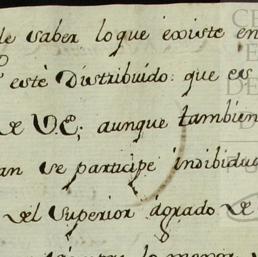 de saber lo que éxiste en
esté Distribuído: que es
de V.E; aunque tambien
an se participe indibidua
del Superior ágrado de
lo menor